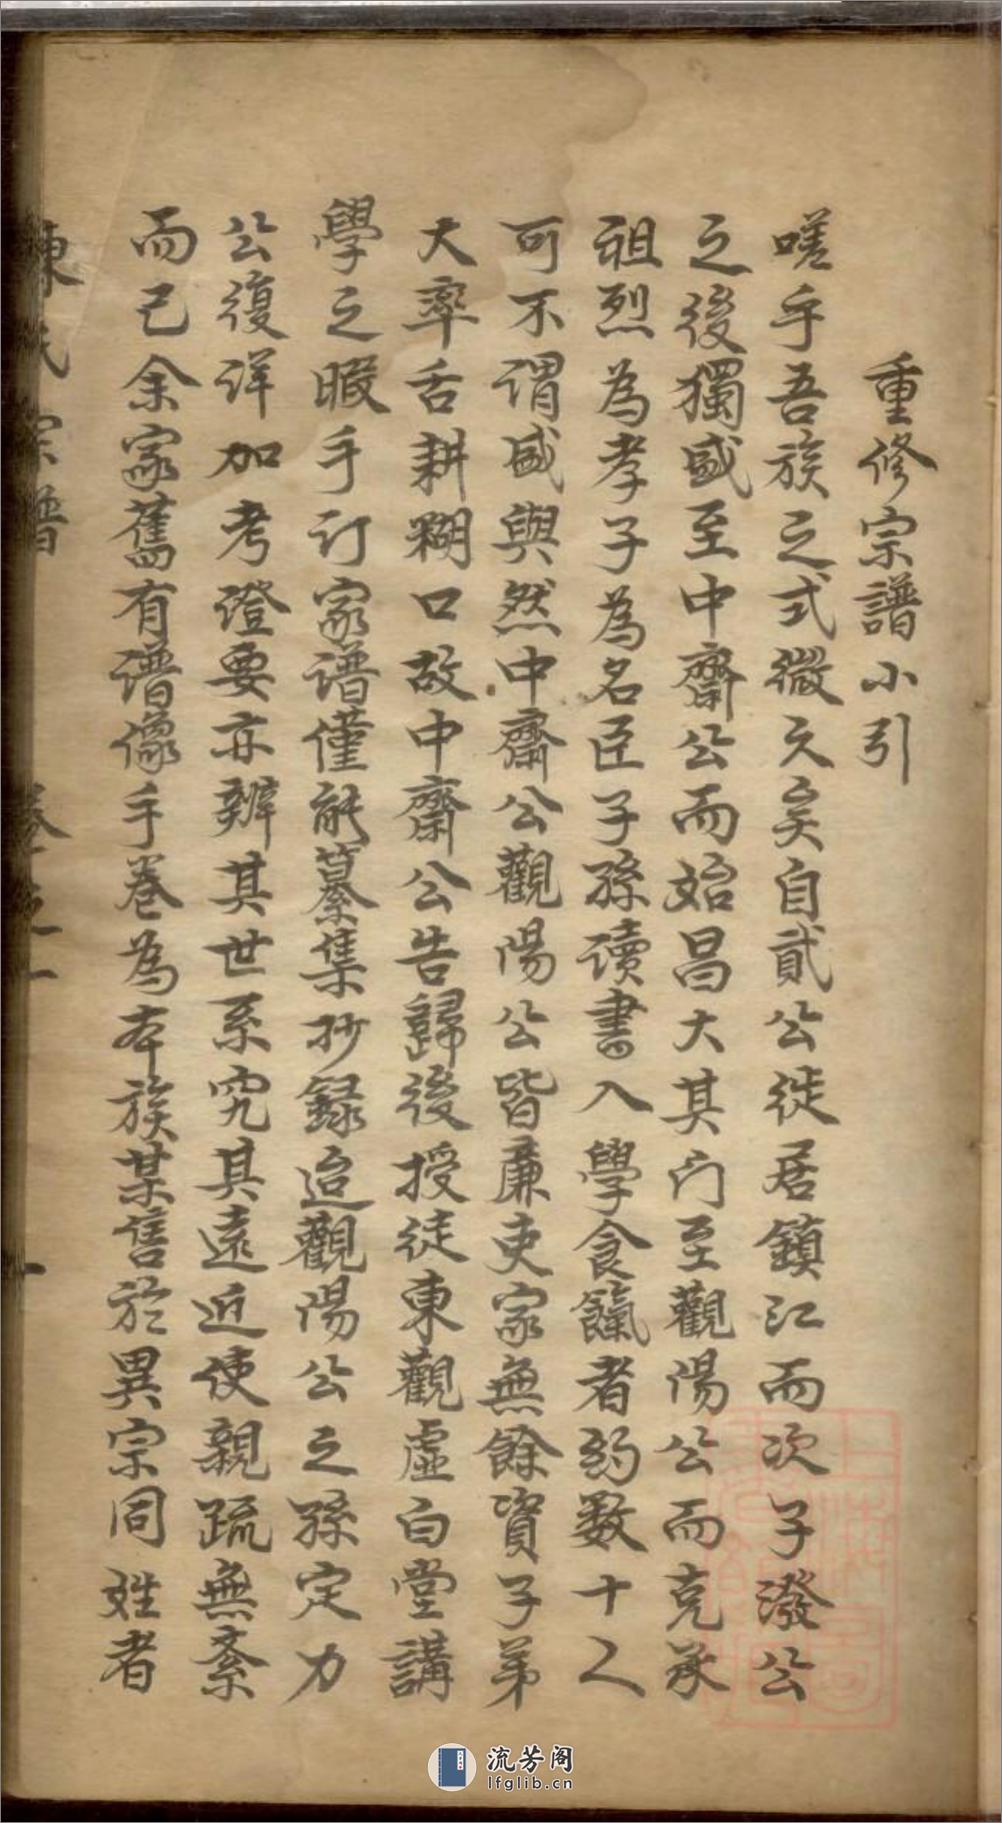 重修宗譜小引
嗟乎吾族之式微久矣自貳公徙居鎮江而次子潑公
之後獨盛至中齋公而始昌大其门至觀陽公而克承
祖烈為孝子為名臣子孫读書入學食餼者約数十人
可不谓盛與然中齋公觀陽公皆廉吏家無餘資子弟
大率舌耕糊口故中齋公告歸後授徒東觀虛白堂講
學之暇手订家谱僅能纂集抄録迨觀陽公之孫定力
公復详加考證要亦辨其世系究其遠近使親疏無紊
而已余家舊有谱像手卷為本族某售於異宗同姓者
陳氏宗譜 卷之一 一
流芳阁
lfglib.cn